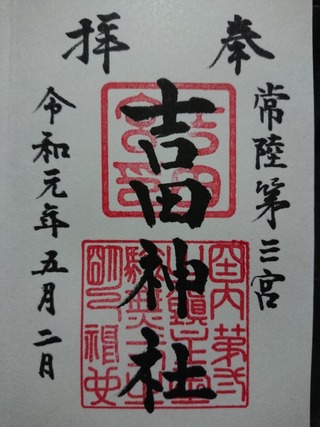 奉拝
常陸第三宮
吉田神社
令和元年五月二日